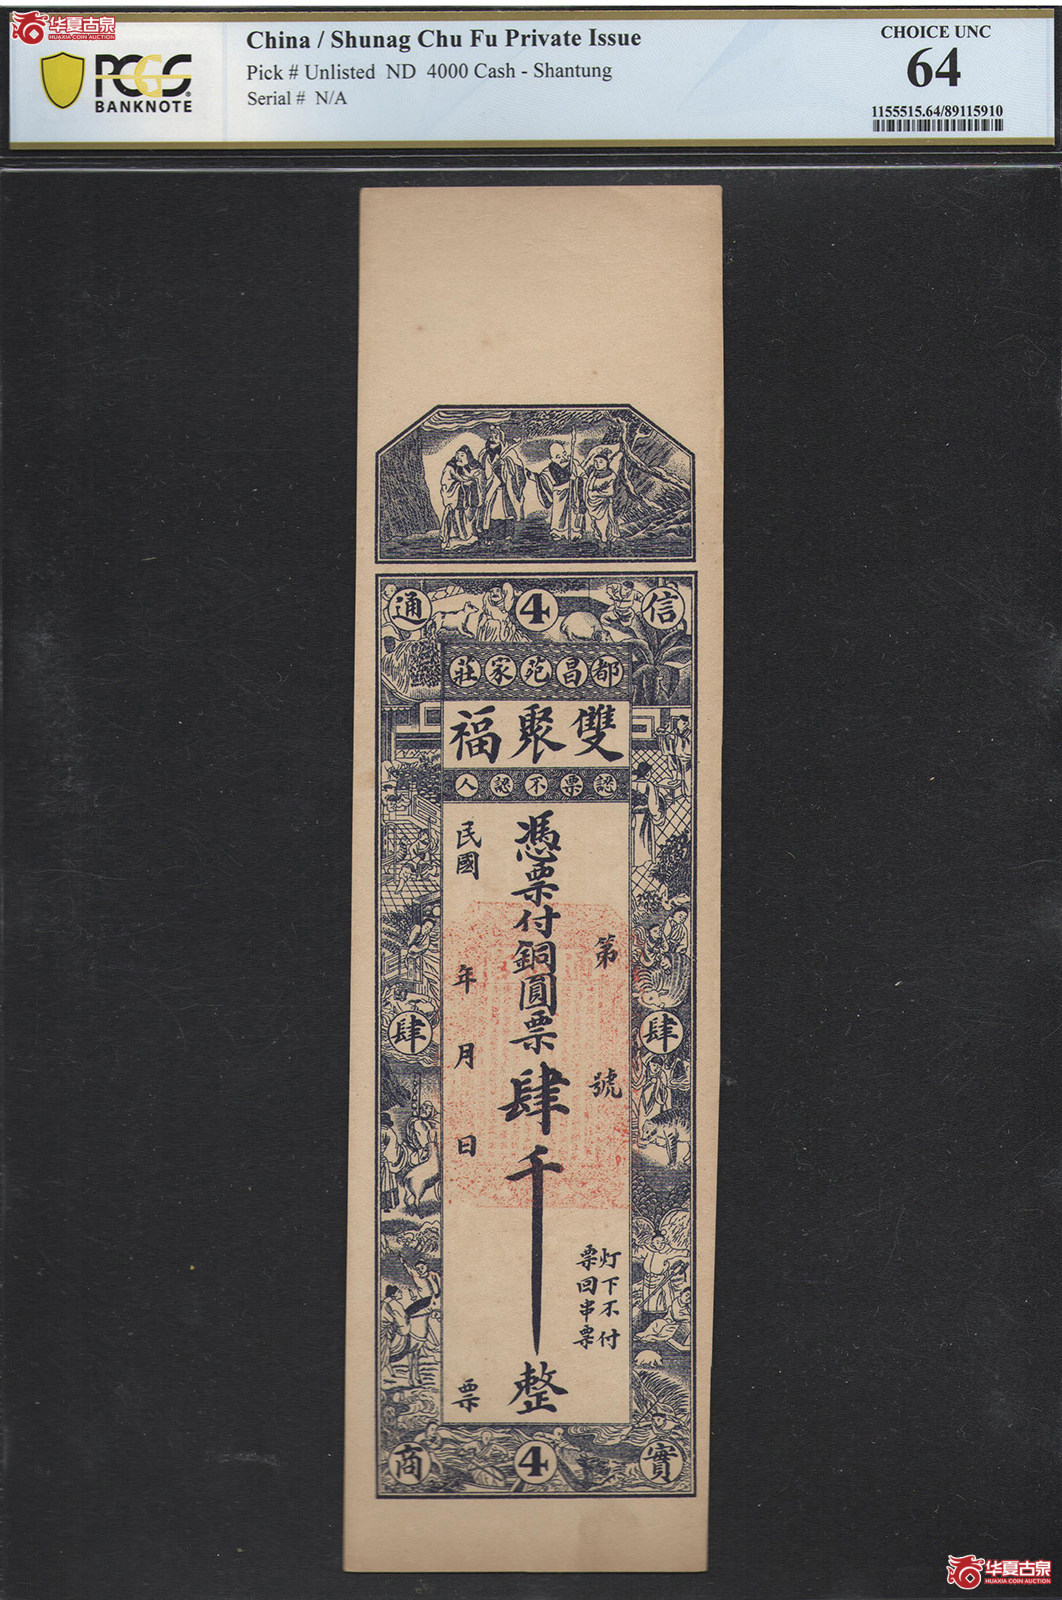 华夏古泉
HUAXIA COIN AUCTION
PCGS
BANKNOTE
China / Shunag Chu Fu Private Issue
Pick # Unlisted ND 4000 Cash - Shantung
Serial # N/A
CHOICE UNC
64
1155515.64/89115910
通 4 信
都昌苑家莊
雙聚福
認票不認人
第 號
憑票付銅圓票肆千整
民國 年 月 日 票
灯下不付
票回串票
肆 肆
商 4 實
华夏古泉
HUAXIA COIN AUCTION